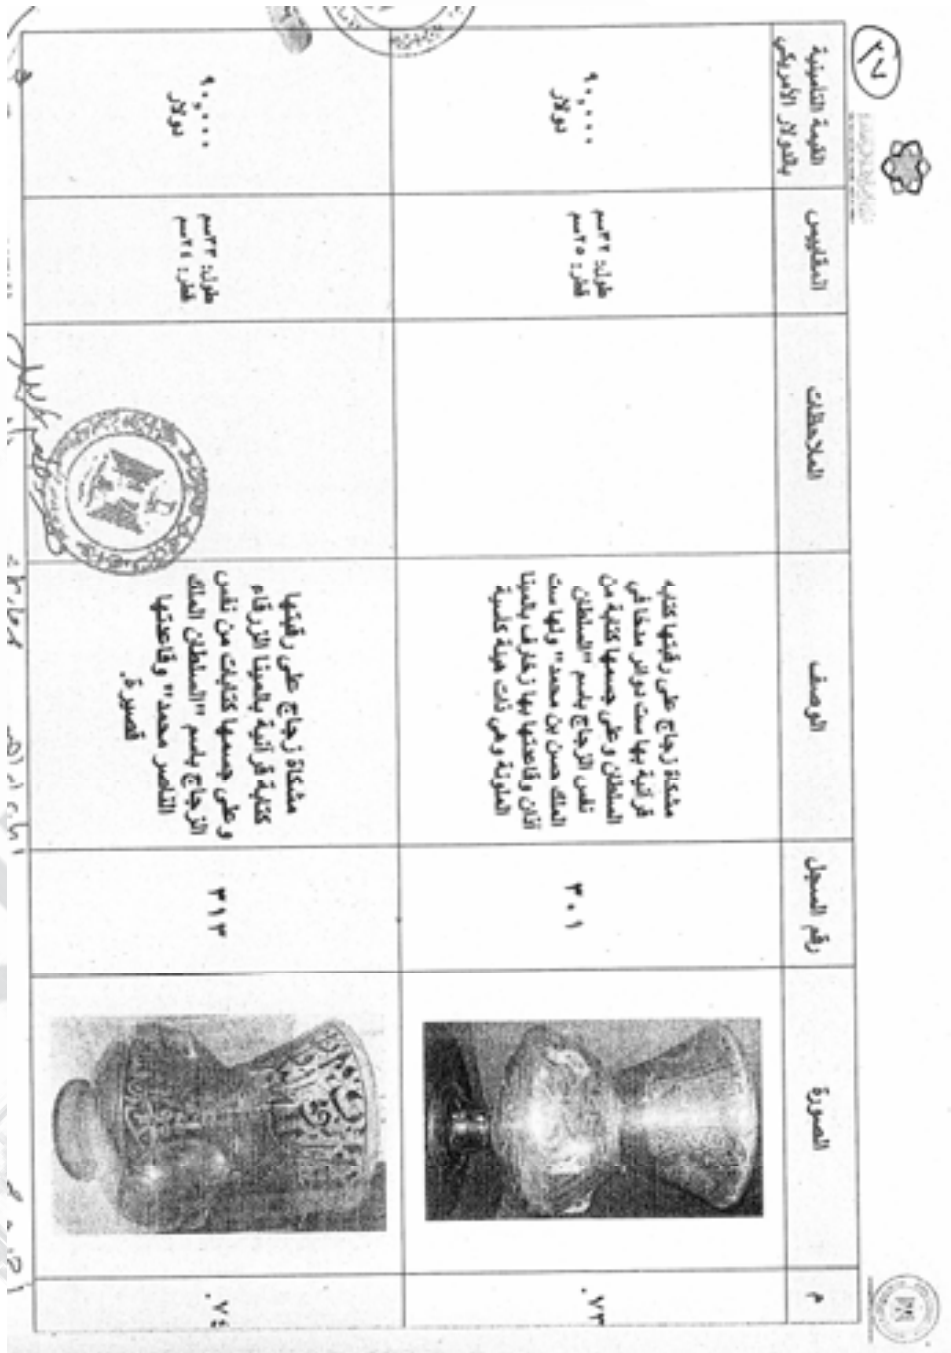 ٢٧
م
الصورة
رقم السجل
الوصف
الملاحظات
المقاييس
القيمة التأمينية
بالدولار الأمريكي
٧٣.
٣٠١
مشكاة زجاج على رقبتها كتابه
قرآنية بها ست دوائر مدخا في
السلطان وعلى جسمها كتابة من
نفس الزجاج باسم "السلطان
الملك حسن بن محمد" ولها ست
آذان وقاعدتها بها زخارف بالمينا
الملونة وهي ذات هيئة كأسية
طول: ٣٢سم
قطر: ٢٥سم
٩٠,٠٠٠
دولار
٧٤.
٣١٣
مشكاة زجاج على رقبتها
كتابة قرآنية بالمينا الزرقاء
وعلى جسمها كتابات من نفس
الزجاج باسم "السلطان الملك
الناصر محمد" وقاعدتها
قصيرة.
طول: ٣٣سم
قطر: ٢٤سم
٩٠,٠٠٠
دولار